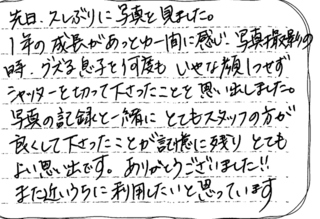 先日、久しぶりに写真を見ました。
1年の成長があっとゆー間に感じ 写真撮影の
時、うごる息子を何度も いやな顔1つせず
シャッターをとって下さったことを思い出しました。
写真の記録と一緒に とてもスタッフの方が
良くして下さったことが記憶に残り とても
よい思い出です。ありがとうございました!!
また近いうちに利用したいと思っています